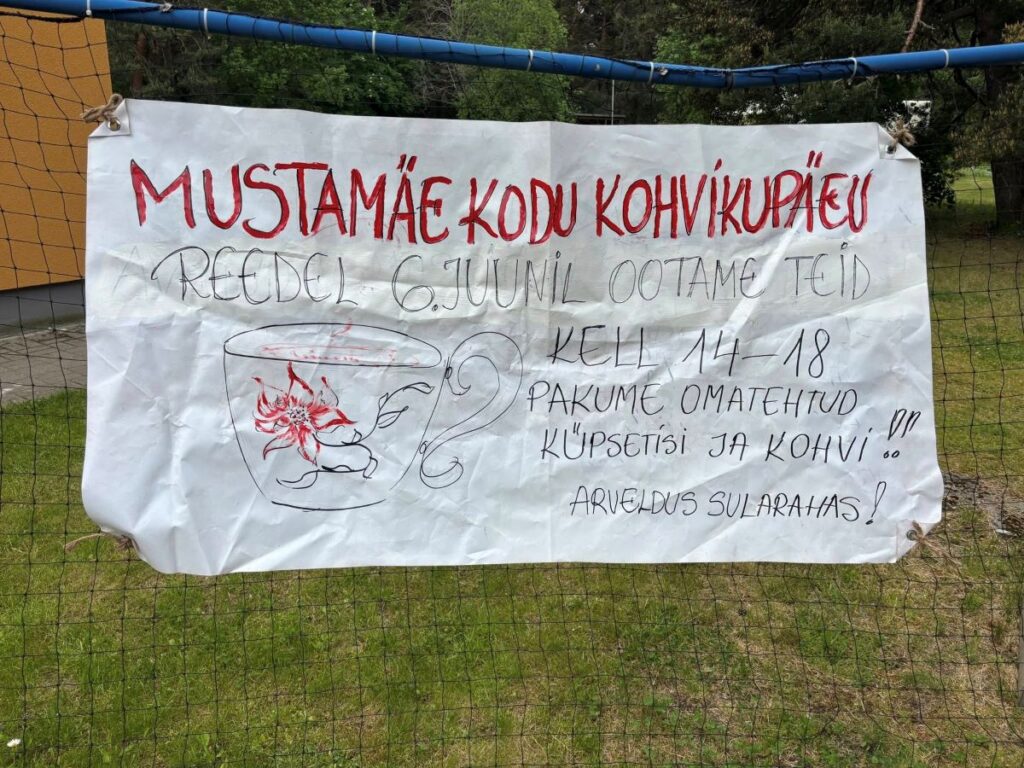 MUSTAMÄE KODU KOHVIKUPÄEV
REEDEL 6.JUUNIL OOTAME TEID
KELL 14-18
PAKUME OMATEHTUD
KÜPSETISI JA KOHVI!!
ARVELDUS SULARAHAS!